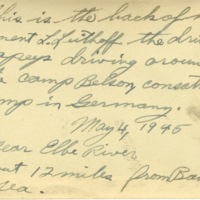 This is the back of
ment L. Luthoff the dri
apeys driving aroun
camp Belson consat
mp in Germany.
May 4, 1945
ear Elbe River
ut 12 miles from Ba
sea.